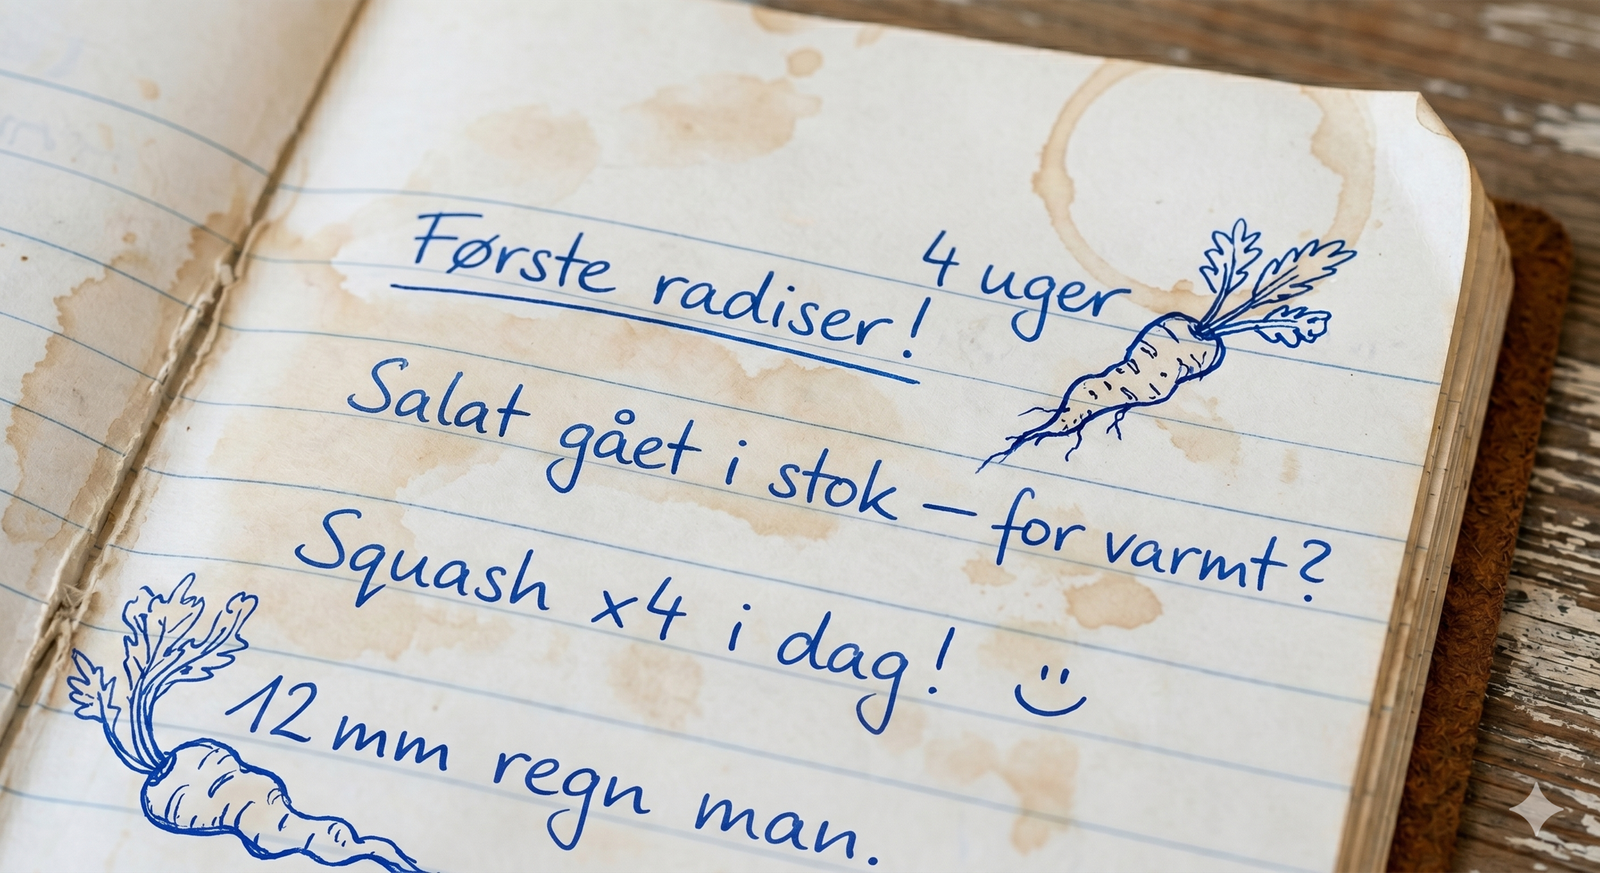 Første radiser! 4 uger
Salat gået i stok – for varmt?
Squash x4 i dag! :)
12 mm regn man.